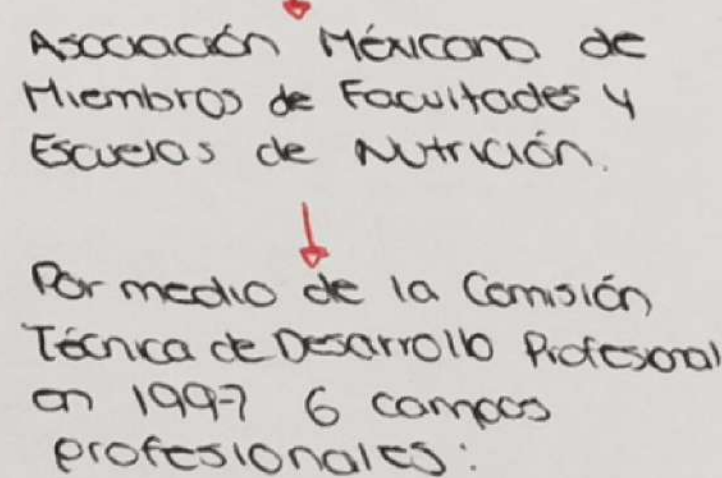 Asociación Méxicana de
Miembros de Facultades y
Escuelas de Nutrición.
Por medio de la Comisión
Técnica de Desarrollo Profesional
en 1997 6 campos
profesionales: